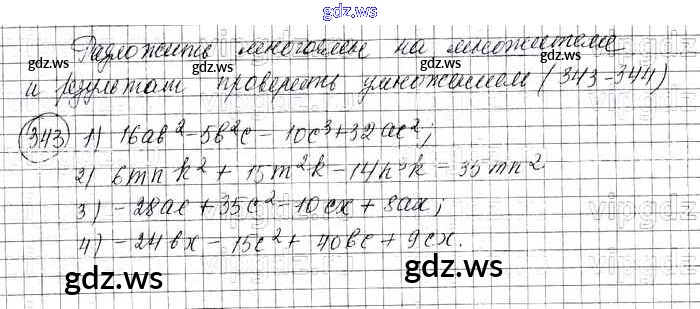 gdz.ws
Разложить многочлен на множители
и результат проверить умножением (343-344)
gdz.ws gdz.ws gdz.ws
343 1) 16ab² - 5b²c - 10c³ + 32ac²;
2) 6mnk² + 15m²k - 14n³k - 35mn²
3) -28ac + 35c² - 10cx + 8ax;
4) -24bx - 15c² + 40bc + 9cx.
gdz.ws gdz.ws
vipgdz